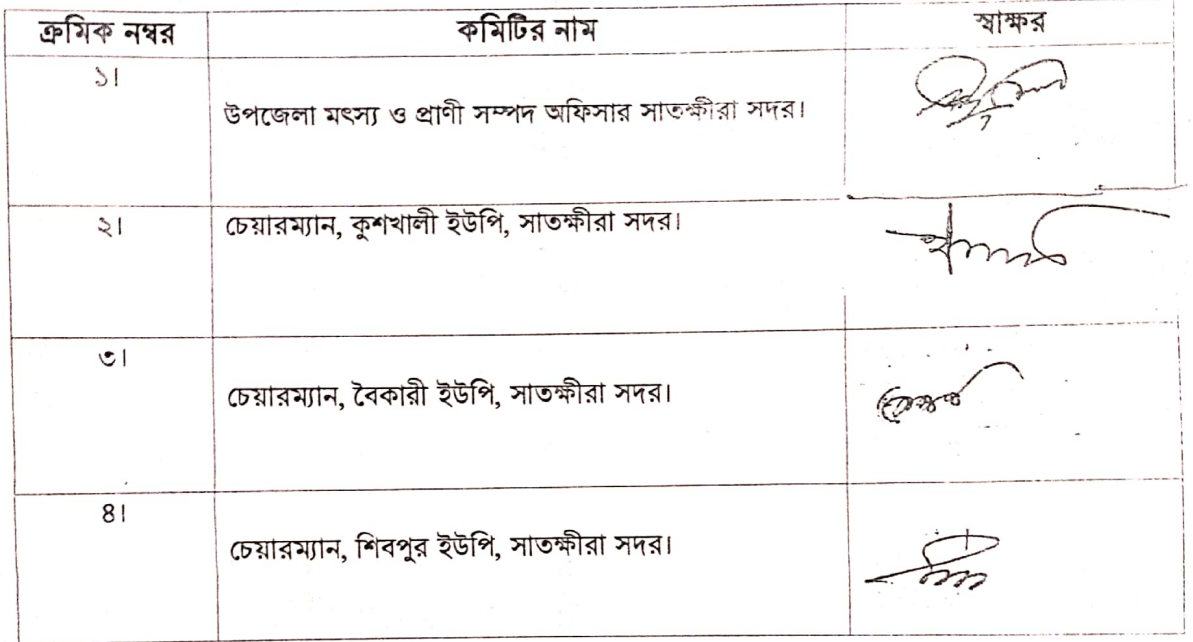 ক্রমিক নম্বর কমিটির নাম স্বাক্ষর
১।
উপজেলা মৎস্য ও প্রাণী সম্পদ অফিসার সাতক্ষীরা সদর।
২। চেয়ারম্যান, কুশখালী ইউপি, সাতক্ষীরা সদর।
৩।
চেয়ারম্যান, বৈকারী ইউপি, সাতক্ষীরা সদর।
৪।
চেয়ারম্যান, শিবপুর ইউপি, সাতক্ষীরা সদর।